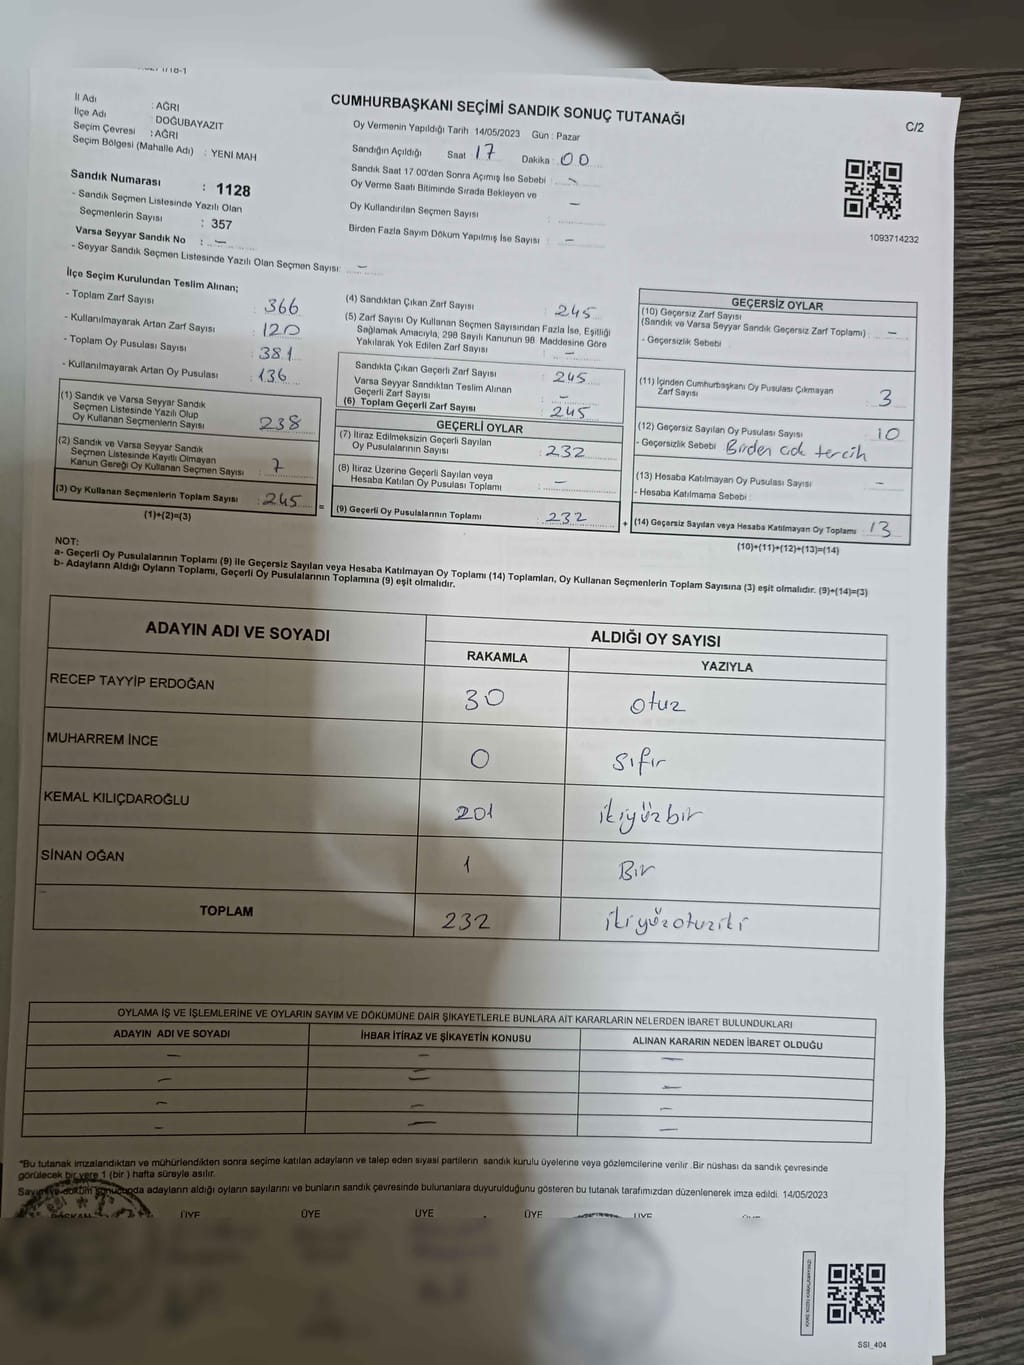 CUMHURBAŞKANI SEÇİMİ SANDIK SONUÇ TUTANAĞI
C/2
İl Adı : AĞRI
İlçe Adı : DOĞUBAYAZIT
Seçim Çevresi : AĞRI
Seçim Bölgesi (Mahalle Adı) : YENİ MAH
Sandık Numarası : 1128
- Sandık Seçmen Listesinde Yazılı Olan
Seçmenlerin Sayısı : 357
Varsa Seyyar Sandık No : —
- Seyyar Sandık Seçmen Listesinde Yazılı Olan Seçmen Sayısı: —
Oy Vermenin Yapıldığı Tarih : 14/05/2023 Gün : Pazar
Sandığın Açıldığı Saat 17 Dakika : 00
Sandık Saat 17.00'den Sonra Açımış İse Sebebi : -
Oy Verme Saati Bitiminde Sırada Bekleyen ve —
Oy Kullandırılan Seçmen Sayısı :
Birden Fazla Sayım Döküm Yapılmış İse Sayısı : —
1093714232
İlçe Seçim Kurulundan Teslim Alınan;
- Toplam Zarf Sayısı : 366
- Kullanılmayarak Artan Zarf Sayısı : 120
- Toplam Oy Pusulası Sayısı : 381
- Kullanılmayarak Artan Oy Pusulası : 136
(1) Sandık ve Varsa Seyyar Sandık
Seçmen Listesinde Yazılı Olup
Oy Kullanan Seçmenlerin Sayısı : 238
(2) Sandık ve Varsa Seyyar Sandık
Seçmen Listesinde Kayıtlı Olmayan
Kanun Gereği Oy Kullanan Seçmen Sayısı : 7
(3) Oy Kullanan Seçmenlerin Toplam Sayısı : 245 =
(1)+(2)=(3)
(4) Sandıktan Çıkan Zarf Sayısı : 245
(5) Zarf Sayısı Oy Kullanan Seçmen Sayısından Fazla İse, Eşitliği
Sağlamak Amacıyla, 298 Sayılı Kanunun 98 Maddesine Göre
Yakılarak Yok Edilen Zarf Sayısı : —
Sandıkta Çıkan Geçerli Zarf Sayısı : 245
Varsa Seyyar Sandıktan Teslim Alınan
Geçerli Zarf Sayısı : —
(6) Toplam Geçerli Zarf Sayısı : 245
GEÇERLİ OYLAR
(7) İtiraz Edilmeksizin Geçerli Sayılan
Oy Pusulalarının Sayısı : 232
(8) İtiraz Üzerine Geçerli Sayılan veya
Hesaba Katılan Oy Pusulası Toplamı : —
(9) Geçerli Oy Pusulalarının Toplamı : 232 +
GEÇERSİZ OYLAR
(10) Geçersiz Zarf Sayısı
(Sandık ve Varsa Seyyar Sandık Geçersiz Zarf Toplamı) : —
- Geçersizlik Sebebi
(11) İçinden Cumhurbaşkanı Oy Pusulası Çıkmayan
Zarf Sayısı : 3
(12) Geçersiz Sayılan Oy Pusulası Sayısı : 10
- Geçersizlik Sebebi : Birden çok tercih
(13) Hesaba Katılmayan Oy Pusulası Sayısı : —
- Hesaba Katılmama Sebebi :
(14) Geçersiz Sayılan veya Hesaba Katılmayan Oy Toplamı : 13
(10)+(11)+(12)+(13)=(14)
NOT:
a- Geçerli Oy Pusulalarının Toplamı (9) ile Geçersiz Sayılan veya Hesaba Katılmayan Oy Toplamı (14) Toplamları, Oy Kullanan Seçmenlerin Toplam Sayısına (3) eşit olmalıdır. (9)+(14)=(3)
b- Adayların Aldığı Oyların Toplamı, Geçerli Oy Pusulalarının Toplamına (9) eşit olmalıdır.
ADAYIN ADI VE SOYADI ALDIĞI OY SAYISI
RAKAMLA YAZIYLA
RECEP TAYYİP ERDOĞAN 30 otuz
MUHARREM İNCE 0 sıfır
KEMAL KILIÇDAROĞLU 201 ikiyüzbir
SİNAN OĞAN 1 Bir
TOPLAM 232 ikiyüzotuziki
OYLAMA İŞ VE İŞLEMLERİNE VE OYLARIN SAYIM VE DÖKÜMÜNE DAİR ŞİKAYETLERLE BUNLARA AİT KARARLARIN NELERDEN İBARET BULUNDUKLARI
ADAYIN ADI VE SOYADI İHBAR İTİRAZ VE ŞİKAYETİN KONUSU ALINAN KARARIN NEDEN İBARET OLDUĞU
— — —
— — —
— — —
— — —
*Bu tutanak imzalandıktan ve mühürlendikten sonra seçime katılan adayların ve talep eden siyasi partilerin sandık kurulu üyelerine veya gözlemcilerine verilir .Bir nüshası da sandık çevresinde
görülecek bir yere 1 (bir ) hafta süreyle asılır.
Sayım ve döküm sonucunda adayların aldığı oyların sayılarını ve bunların sandık çevresinde bulunanlara duyurulduğunu gösteren bu tutanak tarafımızdan düzenlenerek imza edildi. 14/05/2023
BAŞKAN ÜYE ÜYE ÜYE ÜYE ÜYE
SSI_404